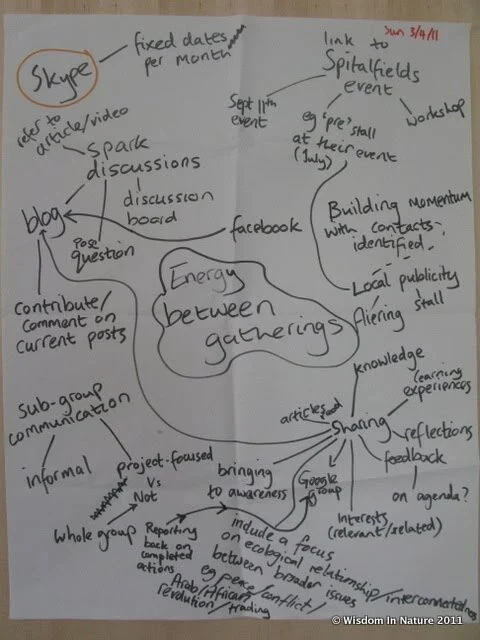 Sun 3/4/11
Skype
fixed dates
per month
link to
Spitalfields
event
Sept 11th
event
eg 'pre' stall
at their event
(July)
workshop
refer to
article/video
spark
discussions
discussion
board
blog
Pose
question
facebook
contribute/
comment on
current posts
Building momentum
with contacts
identified
Local publicity
fliering stall
Energy
between
gatherings
knowledge
learning
experiences
articles read
Sharing
reflections
feedback
on agenda?
Interests
(relevant/related)
Google
group
bringing
to awareness
sub-group
communication
informal
project-focused
vs
Not
whole group
Reporting
back on
completed
actions
include a focus
on ecological relationship/interconnectedness
between broader issues
eg peace/conflict/
Arab/African/
revolution/trading
© Wisdom In Nature 2011